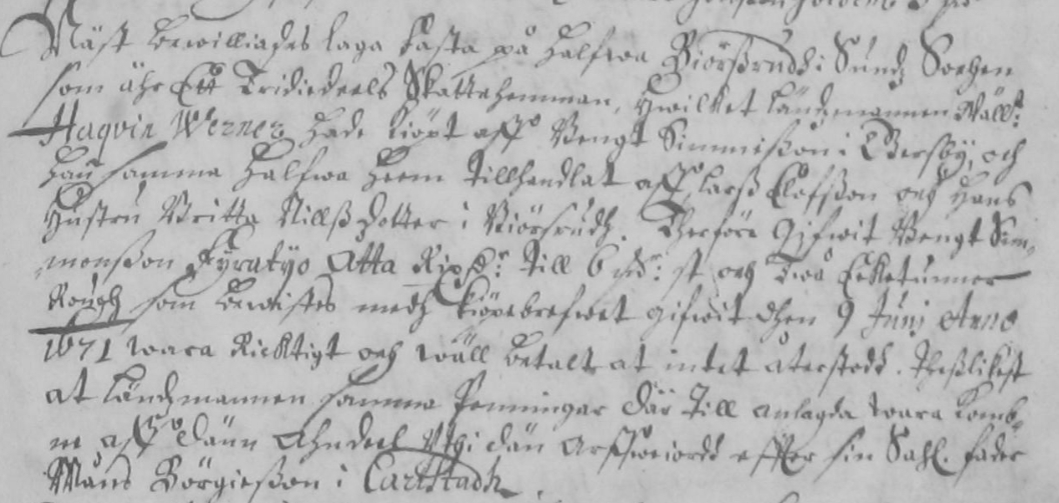 Näst bewilliades laga fasta på halfwa Biörßrudh i Sundz Sochen
som ähr Ett Tridiedeels Skattehemman, hwilketLändzmannen Wäll:t
Haqvin Werner hade kiöpt aff Bengt Simmißon i Edersby, och
han samma halfwa heem tillhandlat aff Larß Eloffßon och hans
hustru Britta Nillßdotter i Biörsrudh. Therföre gifwit Bengt Sim-
monßon Fyratyo Otta Rixd:r till 6 st och Twå
Rough som bewistes medh kiöpebrefwet gifwit dhen 9 Junj Anno
1671 wara Richtigt och wäll betalt at intet återstodh. Theßlikest
at Ländzmannen samma Penningar där till anlagda wara komb-
ne aff dänn Ahndeel Uthi dän Arffwiordh effter sin Sahl. fader
Måns Börgießon i Carlstadh